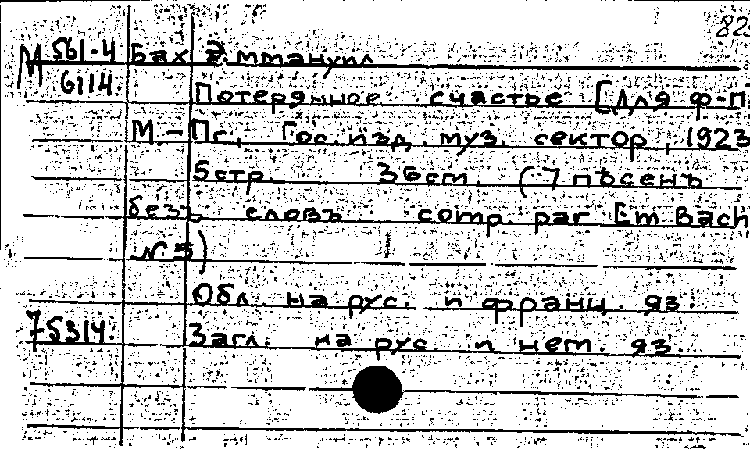 82
М 561-4 Бах Эммануил
6114. Потерянное счастье [Для ф-п
М.-Пг., Гос. изд. муз. сектор, 1923
5 стр. 36 cm. (7 пѣсенъ
безъ словъ comp. par Em. Bach
№ 5)
Обл. на рус. и франц. яз.
75314. Загл. на рус и нем. яз.